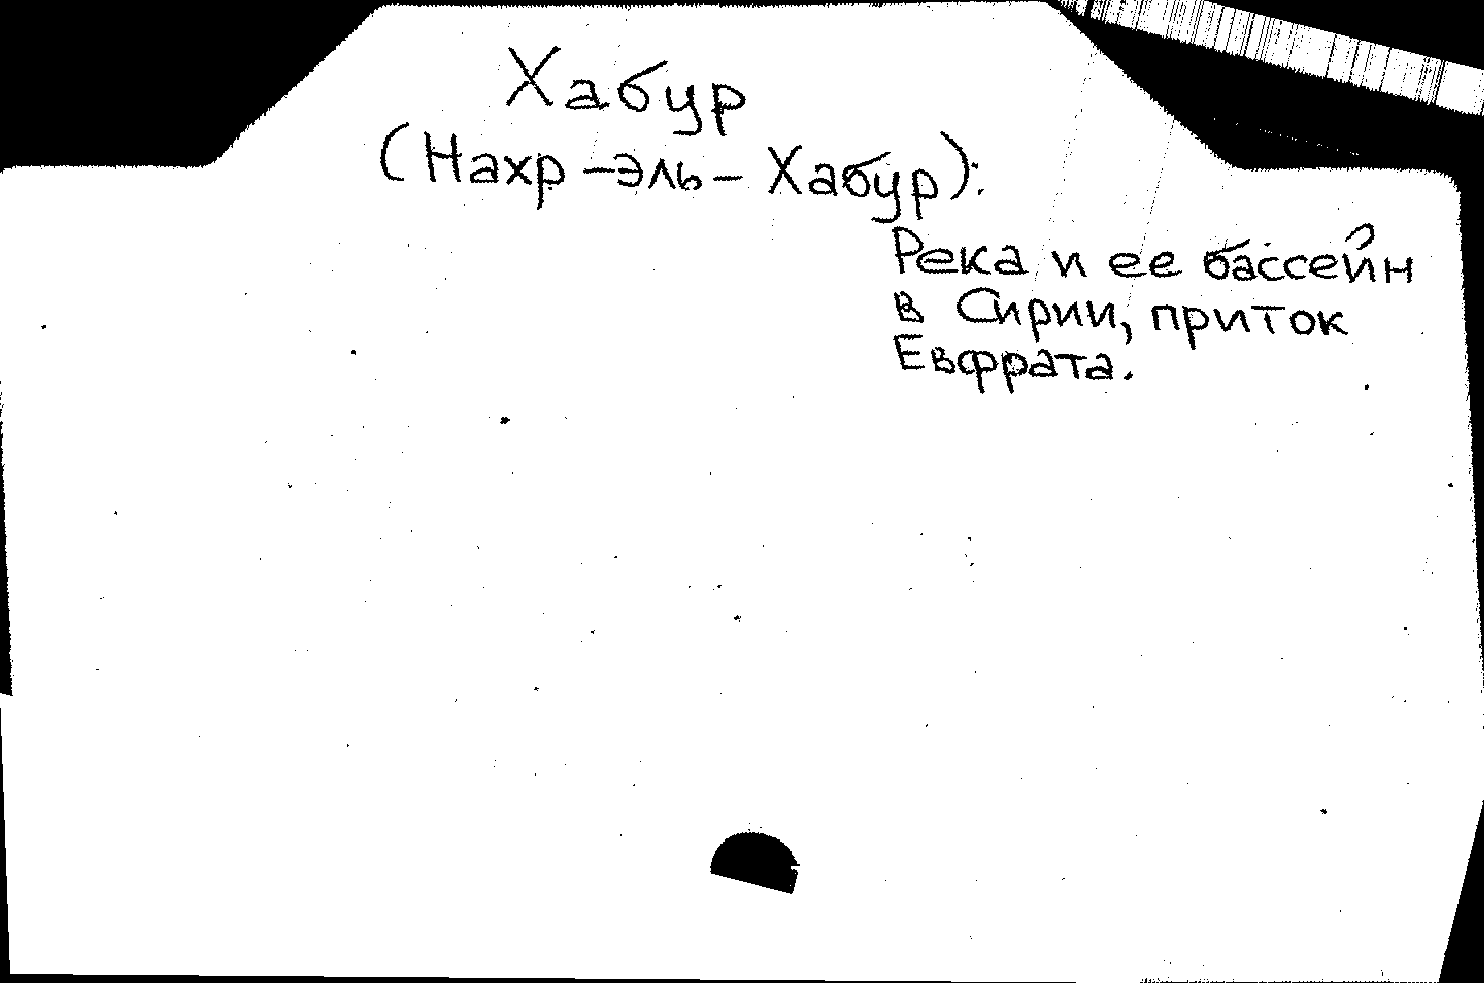 Хабур
(Нахр-эль-Хабур):
Река и ее бассейн
в Сирии, приток
Евфрата.